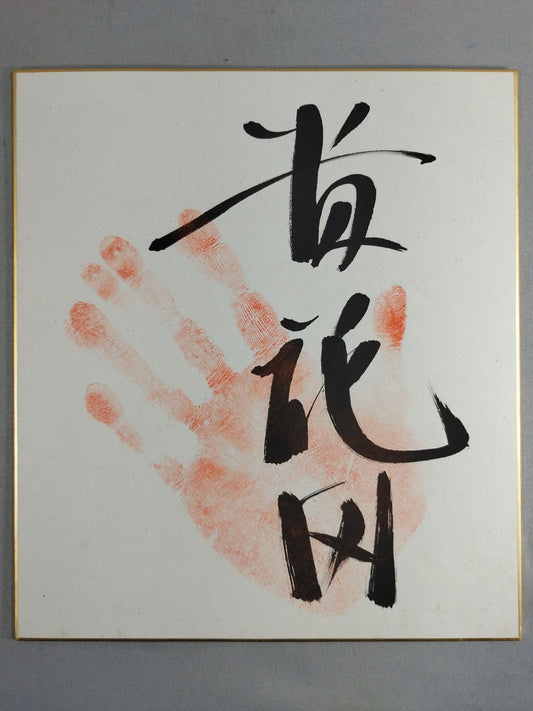 貴花田